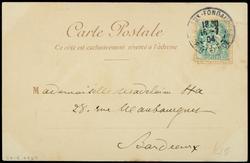 Carte Postale
Ce côté est exclusivement réservé à l'adresse
Mademoiselle Madeleine Ha
28, rue Maubourguet
Bordeaux